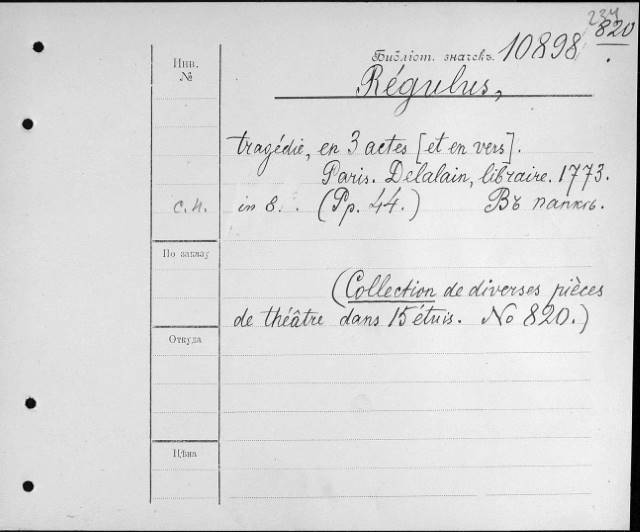 237
820
Инв.
№
Библіот. значекъ. 10898
Régulus,
tragédie, en 3 actes [et en vers].
Paris. Delalain, libraire. 1773.
с. н. in 8. . (Pp. 44.) Въ папкѣ.
По заказу
(Collection de diverses pièces
de théâtre dans 15 étuis. No 820.)
Откуда
Цѣна